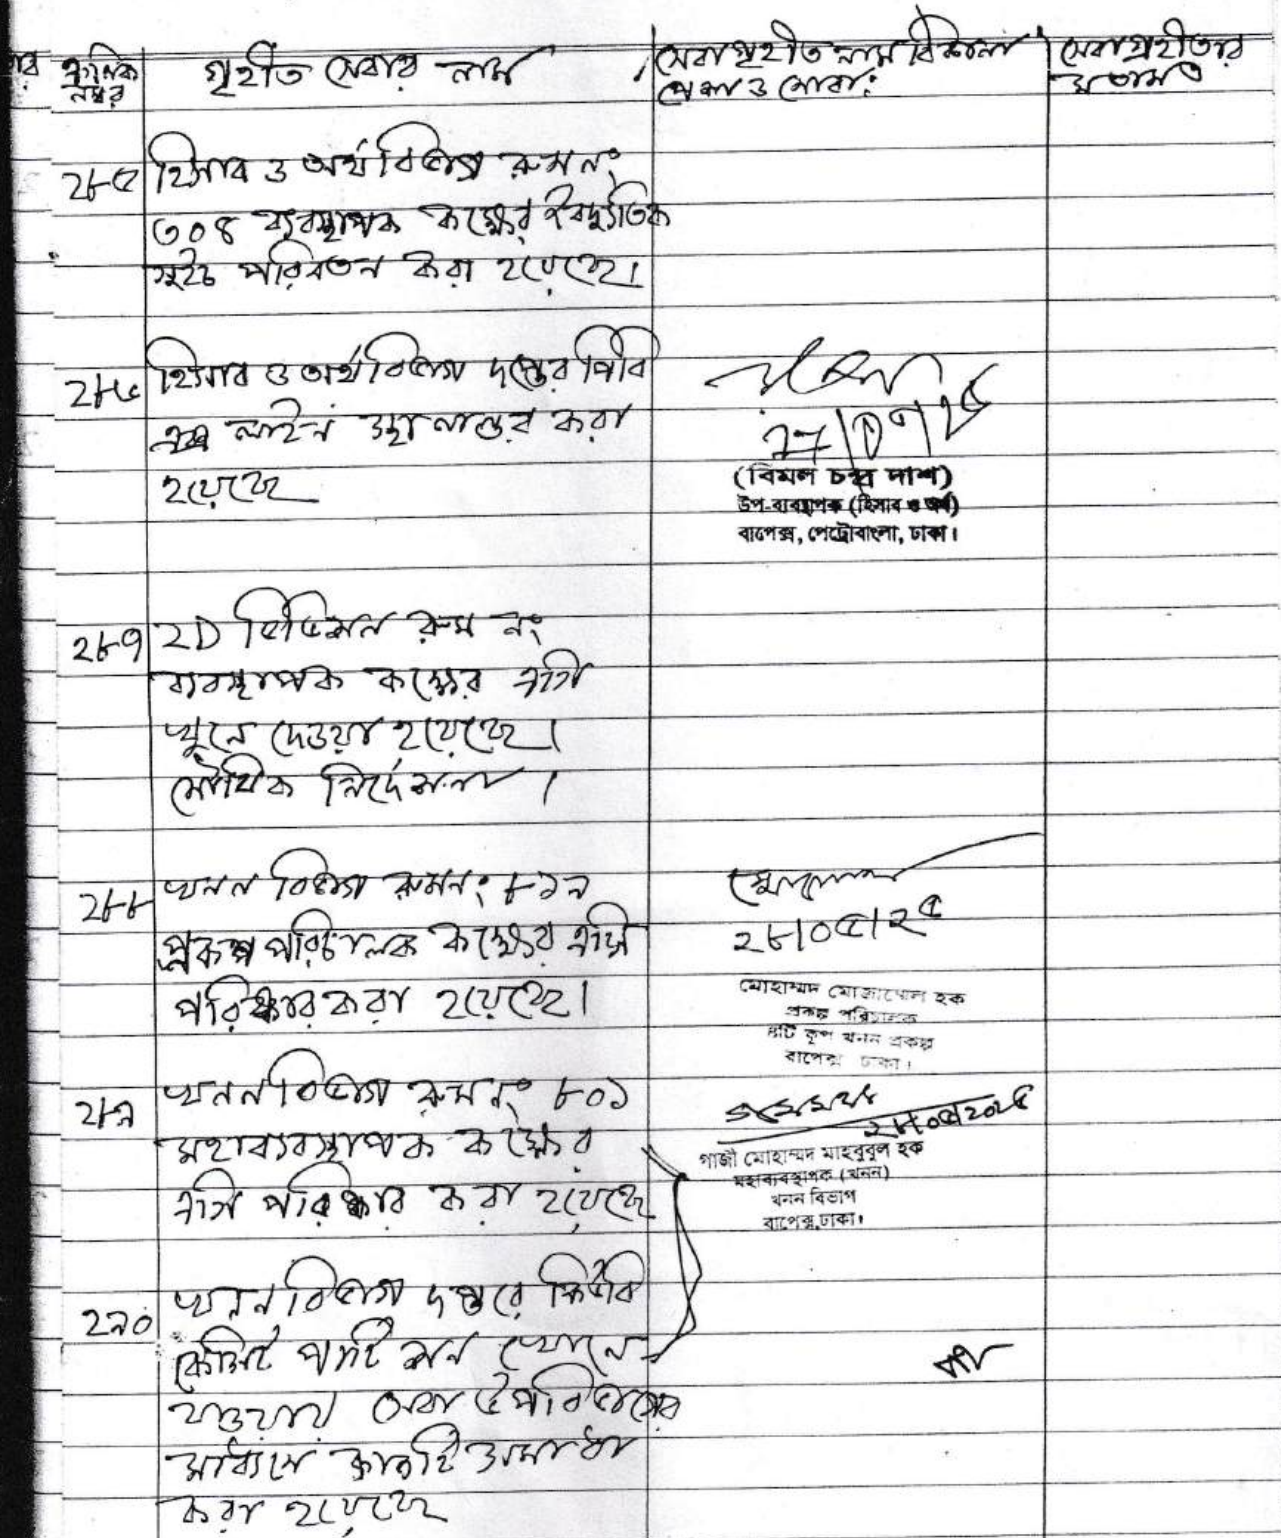 ক্রমিক নম্বর
গৃহীত সেবার নাম
সেবাগ্রহীতার নাম ঠিকানা
পেশা ও মোবা:
সেবাগ্রহীতার
মতামত
২৮৫
হিসাব ও অর্থ বিভাগ রুম নং
৩০৪ ব্যবস্থাপক কক্ষের বৈদ্যুতিক
সুইচ পরিবর্তন করা হয়েছে।
২৮৬
হিসাব ও অর্থ বিভাগ দপ্তর পিবি
এক্স লাইন স্থানান্তর করা
হয়েছে
(বিমল চন্দ্র দাশ)
উপ-ব্যবস্থাপক (হিসাব ও অর্থ)
বাপেক্স, পেট্রোবাংলা, ঢাকা।
২৮৭
2D ডিভিশন রুম নং
ব্যবস্থাপক কক্ষের এসি
খুলে দেওয়া হয়েছে।
মৌখিক নির্দেশনা।
২৮৮
খনন বিভাগ রুম নং ৮১৯
প্রকল্প পরিচালক কক্ষের এসি
পরিষ্কার করা হয়েছে।
২৮/০৫/২৫
মোহাম্মদ মোজাম্মেল হক
প্রকল্প পরিচালক
কূপ খনন প্রকল্প
বাপেক্স ঢাকা।
২৮৯
খনন বিভাগ রুম নং ৮০১
মহাব্যবস্থাপক কক্ষের
এসি পরিষ্কার করা হয়েছে
২৮/০৫/২০২৫
গাজী মোহাম্মদ মাহবুবুল হক
মহাব্যবস্থাপক (খনন)
খনন বিভাগ
বাপেক্স, ঢাকা।
২৯০
খনন বিভাগ দপ্তরে
কেবিনেট পার্টিশন খোলে
যাওয়ায়
মাধ্যমে কাজটি সমাধা
করা হয়েছে